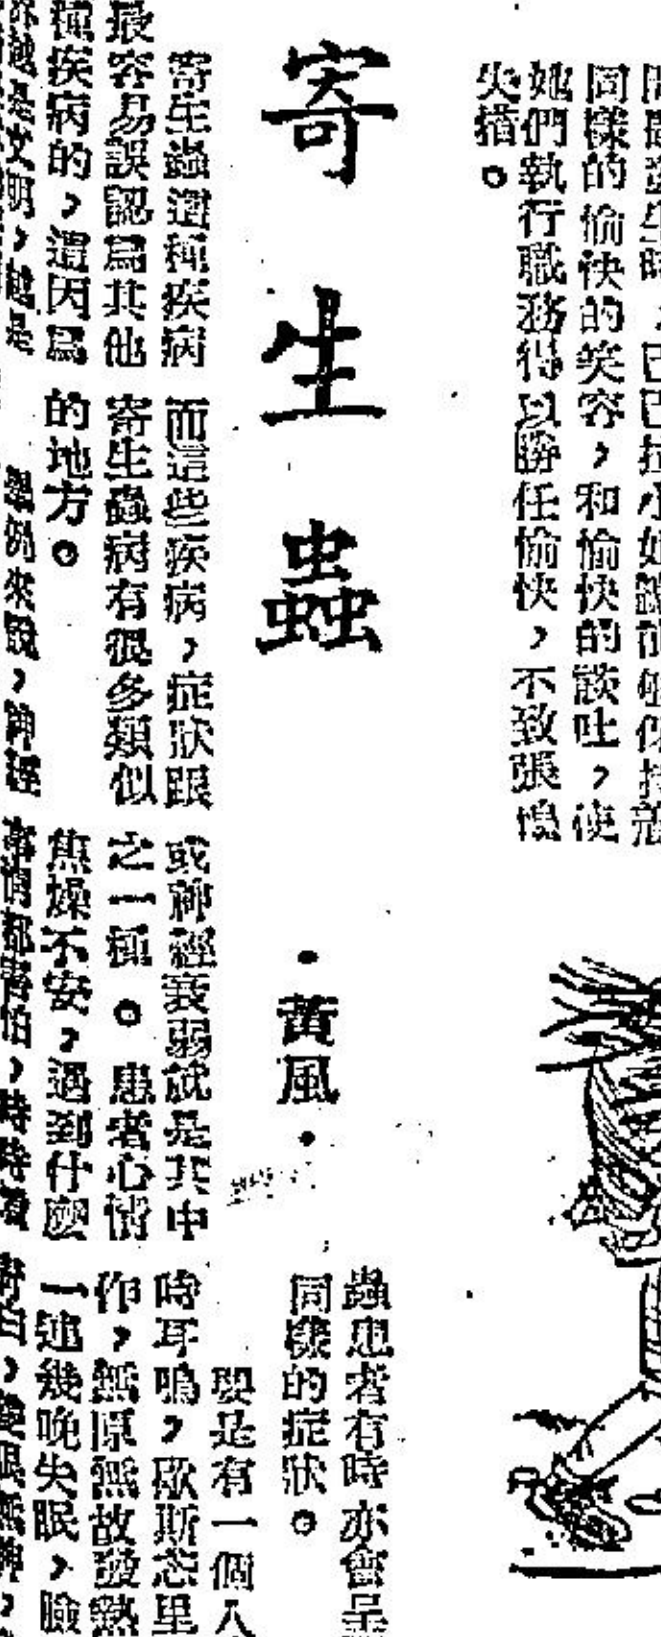 同樣的愉快的笑容，和愉快的談吐，使
她們執行職務得以勝任愉快，不致張惶
失措。
寄生蟲
·黃風·
寄生蟲這種疾病
最容易誤認爲其他
種疾病的，這因爲
越是文明，越是
而這些疾病，症狀跟
寄生蟲病有很多類似
的地方。
舉例來說，神經
或神經衰弱就是其中
之一種。患者心情
焦燥不安，遇到什麼
事情都害怕，時時
蟲患者有時亦會呈
同樣的症狀。
要是有一個人
時耳鳴，歇斯忒里
作，無原無故發熱
一連幾晚失眠，臉